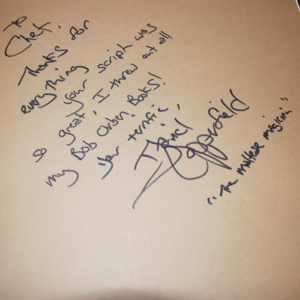 To
Chet,
Thanks for
everything
so great your script was
I threw out all
my Bob Orben Books!
Your terrific,
David
Copperfield
"The